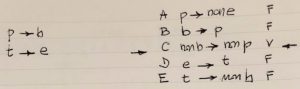 p → b
t → e
A p → none F
B b → p F
→ C non b → non p V ←
D e → t F
E t → non b F